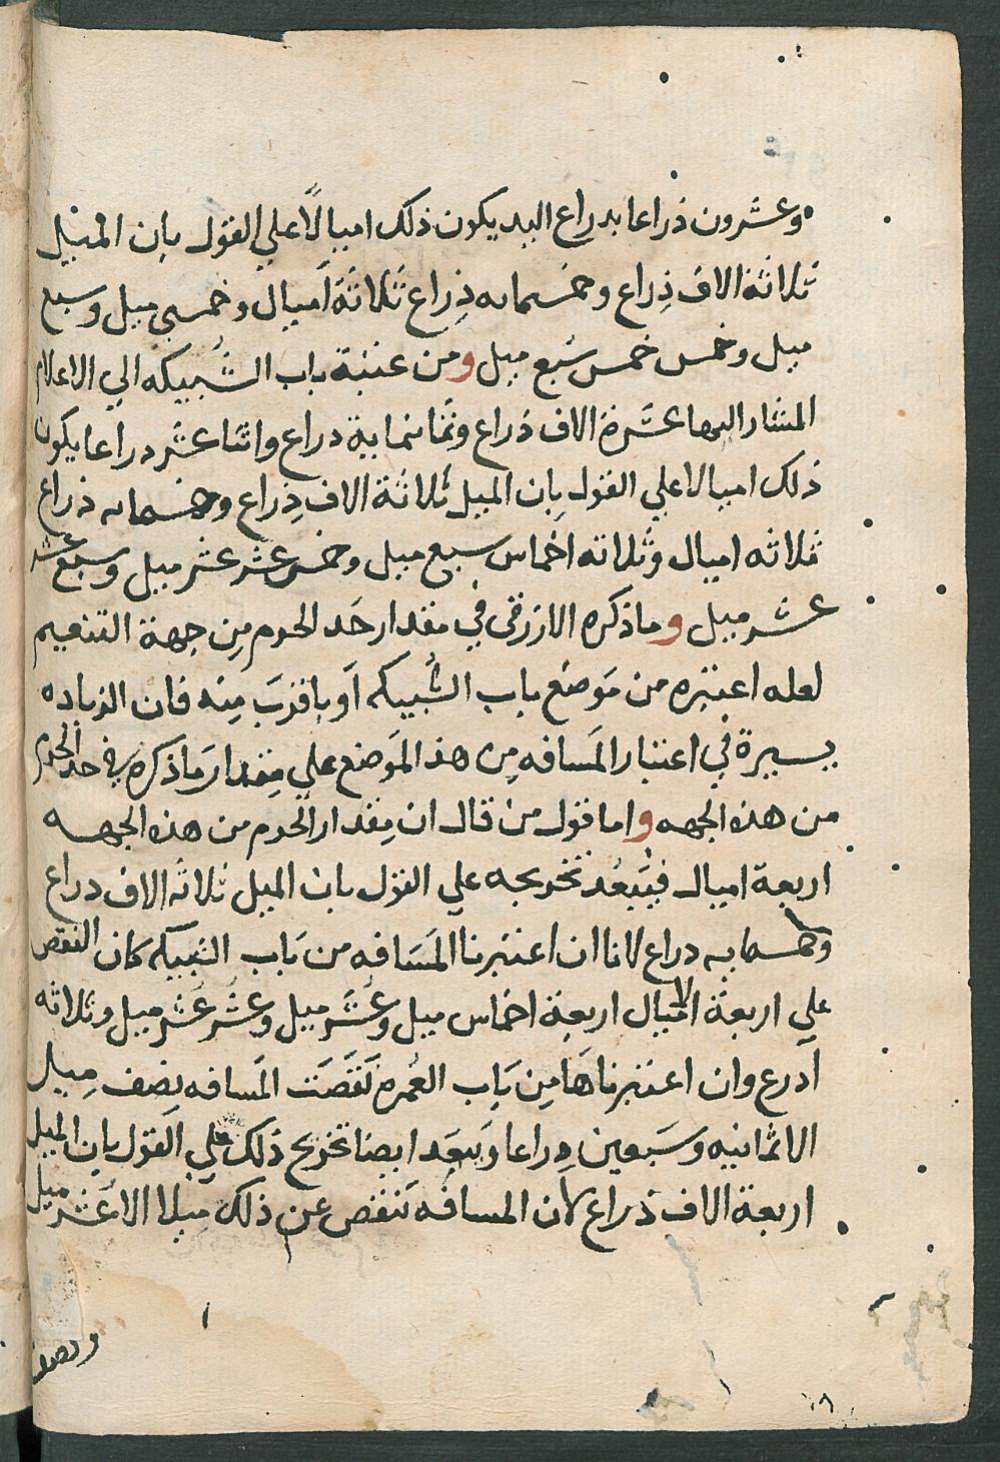 وعشرون ذراعا بدراع اليد يكون ذلك اميالًا علي القول بان الميل
ثلاثة الاف ذِراع وخمسمايه ذِراع ثَلاثَة اَميال وخمسي ميل وسبع
ميل وخمس خمس سُبع ميل ومن عتبة باب الشُبيكه الي الاعلام
المشار اليها عشرة الاف ذراع وثَمانماية دراع واثنا عشر دراعا يكون
ذلك اميالا علي القول بان الميل ثلاثة الاف ذِراع وخمسمايه ذراع
ثلاثه اميال وثلاثه اخماس سبع ميل وخمس عشر عشر ميل وسبع عشر
عشر ميل وما ذكره الازرقى في مقدار حَد الحرم مِن جهة التنعيم
لعله اعتبره من مَوضع باب الشُبيكه اَو ما قرَبَ مِنه فان الزياده
يسيرة في اعتبار المَسافه مِن هذ المَوضع علي مِقدار مَا ذكره في حد الحرم
من هذه الجهه واما قول من قال ان مِقدار الحَرم من هذه الجهه
اربعة اميال فيَبعُد تخريجه علي القول بان الميل ثلاثه الاف دراع
وخمسمايه دراع لانا ان اعتبرنا المَسَافه من بَاب الشبيكه كان النقص
علي اربعة الاميال اربعة اخماس ميل وعُشَر ميل وعشُر عُشر ميل وثلاثه
ادرع وان اعتبرناهَا مِن بَاب العُمره نَقَصَت المَسافه نِصف مِيل
الا ثمانيه وسَبعين دِراعا وَيبعَد ايضا تخريج ذلك علي القول بان الميل
اربعة الاف ذراع لان المسافه تَنقص عن ذلك مِيلا الا عُشر ميل
ونصف